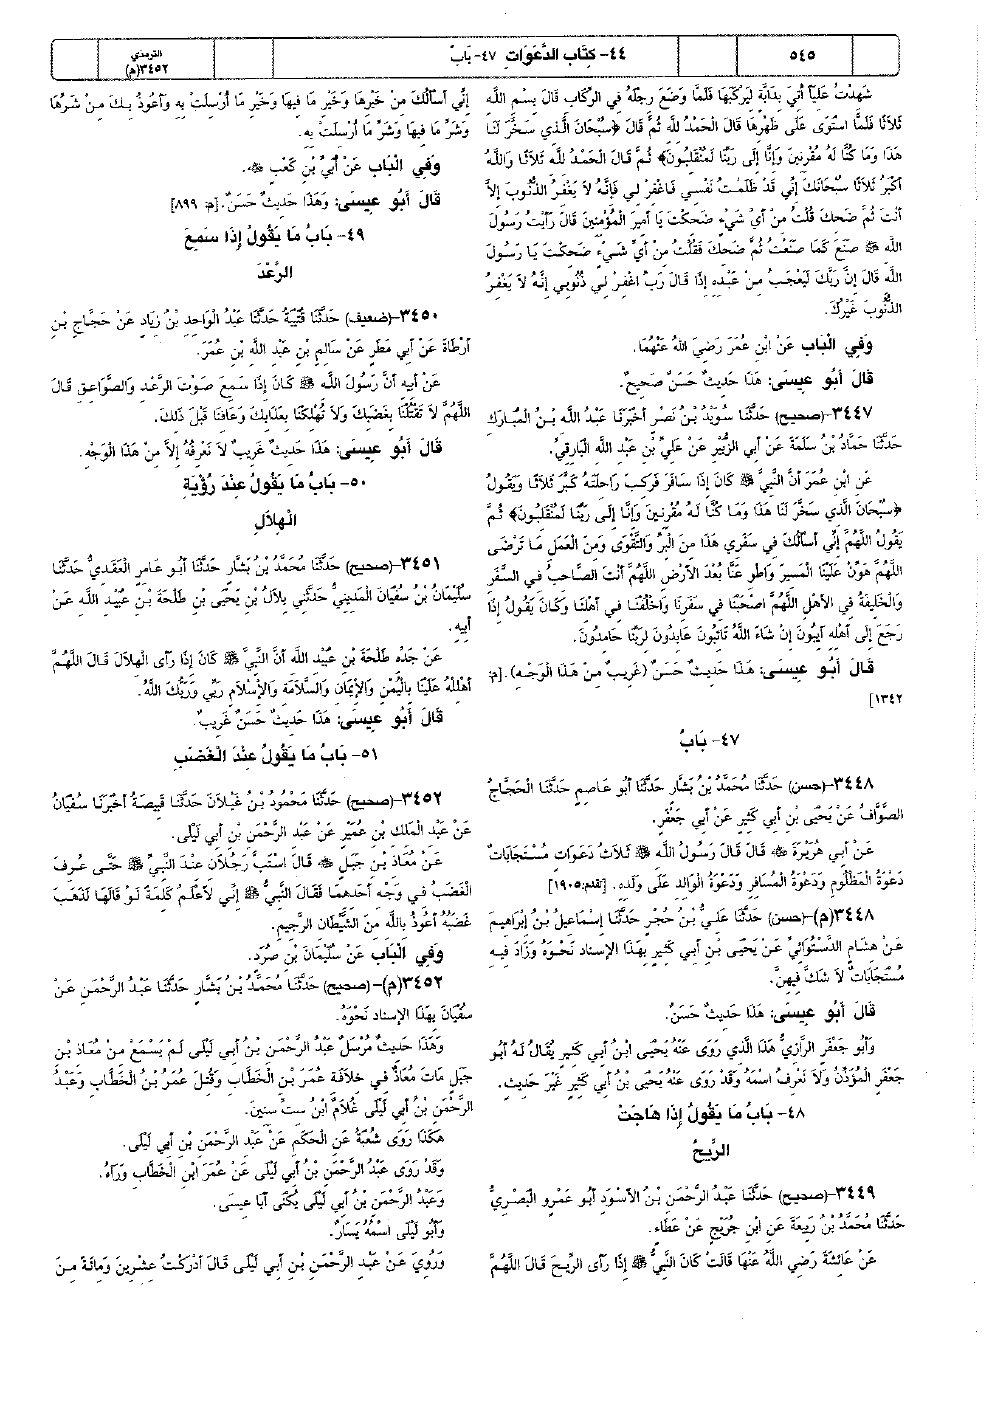 ٥٤٥
٤٤- كِتَاب الدَّعَوَاتِ ٤٧- بَابٌ
الترمذي
٣٤٥٢(م)
شَهِدْتُ عَلِيّاً أُتِيَ بِدَابَّةٍ لِيَرْكَبَهَا فَلَمَّا وَضَعَ رِجْلَهُ فِي الرِّكَابِ قَالَ بِسْمِ اللَّه
ثَلاَثًا فَلَمَّا اسْتَوَى عَلَى ظَهْرِهَا قَالَ الْحَمْدُ للَّه ثُمَّ قَالَ ﴿سُبْحَانَ الَّذي سَخَّرَ لَنَا
هَذَا وَمَا كُنَّا لَهُ مُقْرِنينَ وَإِنَّا إِلَى رَبِّنَا لَمُنْقَلِبُونَ﴾ ثُمَّ قَالَ الْحَمْدُ للَّه ثَلاَثًا وَاللَّهُ
أَكْبَرُ ثَلاَثًا سُبْحَانَكَ إِنِّي قَدْ ظَلَمْتُ نَفْسِي فَاغْفِرْ لِي فَإِنَّهُ لاَ يَغْفِرُ الذُّنُوبَ إِلاَّ
أَنْتَ ثُمَّ ضَحِكَ قُلْتُ مِنْ أَيِّ شَيْءٍ ضَحِكْتَ يَا أَمِيرَ الْمُؤْمِنينَ قَالَ رَأَيْتُ رَسُولَ
اللَّه ﷺ صَنَعَ كَمَا صَنَعْتُ ثُمَّ ضَحِكَ فَقُلْتُ مِنْ أَيِّ شَيْءٍ ضَحِكْتَ يَا رَسُولَ
اللَّه قَالَ إِنَّ رَبَّكَ لَيَعْجَبُ مِنْ عَبْدِهِ إِذَا قَالَ رَبِّ اغْفِرْ لِي ذُنُوبِي إِنَّهُ لاَ يَغْفِرُ
الذُّنُوبَ غَيْرُكَ.
وَفِي الْبَاب عَنْ ابْنِ عُمَرَ رَضِيَ اللَّهُ عَنْهُمَا.
قَالَ أَبُو عِيسَى: هَذَا حَدِيثٌ حَسَنٌ صَحِيحٌ.
٣٤٤٧-(صحيح) حَدَّثَنَا سُوَيْدُ بْنُ نَصْرٍ أَخْبَرَنَا عَبْدُ اللَّه بْنُ الْمُبَارَك
حَدَّثَنَا حَمَّادُ بْنُ سَلَمَةَ عَنْ أَبِي الزُّبَيْرِ عَنْ عَلِيِّ بْنِ عَبْدِ اللَّه الْبَارِقِيِّ.
عَنِ ابْنِ عُمَرَ أَنَّ النَّبِيَّ ﷺ كَانَ إِذَا سَافَرَ فَرَكِبَ رَاحِلَتَهُ كَبَّرَ ثَلاَثًا وَيَقُولُ
﴿سُبْحَانَ الَّذِي سَخَّرَ لَنَا هَذَا وَمَا كُنَّا لَهُ مُقْرِنينَ وَإِنَّا إِلَى رَبِّنَا لَمُنْقَلِبُونَ﴾ ثُمَّ
يَقُولُ اللَّهُمَّ إِنِّي أَسْأَلُكَ فِي سَفَرِي هَذَا مِنَ الْبِرِّ وَالتَّقْوَى وَمِنَ الْعَمَلِ مَا تَرْضَى
اللَّهُمَّ هَوِّنْ عَلَيْنَا الْمَسِيرَ وَاطْوِ عَنَّا بُعْدَ الأَرْضِ اللَّهُمَّ أَنْتَ الصَّاحِبُ فِي السَّفَرِ
وَالْخَلِيفَةُ فِي الأَهْلِ اللَّهُمَّ اصْحَبْنَا فِي سَفَرِنَا وَاخْلُفْنَا فِي أَهْلِنَا وَكَانَ يَقُولُ إِذَا
رَجَعَ إِلَى أَهْلِهِ آيِبُونَ إِنْ شَاءَ اللَّهُ تَائِبُونَ عَابِدُونَ لِرَبِّنَا حَامِدُونَ.
قَالَ أَبُو عِيسَى: هَذَا حَدِيثٌ حَسَنٌ (غَرِيبٌ مِنْ هَذَا الْوَجْهِ). [م:
١٣٤٢]
٤٧- بَابٌ
٣٤٤٨-(حسن) حَدَّثَنَا مُحَمَّدُ بْنُ بَشَّارٍ حَدَّثَنَا أَبُو عَاصِمٍ حَدَّثَنَا الْحَجَّاجُ
الصَّوَّافُ عَنْ يَحْيَى بْنِ أَبِي كَثِيرٍ عَنْ أَبِي جَعْفَرٍ.
عَنْ أَبِي هُرَيْرَةَ ﷺ قَالَ قَالَ رَسُولُ اللَّه ﷺ ثَلاَثُ دَعَوَاتٍ مُسْتَجَابَاتٌ
دَعْوَةُ الْمَظْلُومِ وَدَعْوَةُ الْمُسَافِرِ وَدَعْوَةُ الْوَالِدِ عَلَى وَلَدِهِ. [تقدم:١٩٠٥]
٣٤٤٨(م)-(حسن) حَدَّثَنَا عَلِيُّ بْنُ حُجْرٍ حَدَّثَنَا إِسْمَاعِيلُ بْنُ إِبْرَاهِيمَ
عَنْ هِشَامٍ الدَّسْتُوَائِيِّ عَنْ يَحْيَى بْنِ أَبِي كَثِيرٍ بِهَذَا الإِسْنَادِ نَحْوَهُ وَزَادَ فِيهِ
مُسْتَجَابَاتٌ لاَ شَكَّ فِيهِنَّ.
قَالَ أَبُو عِيسَى: هَذَا حَدِيثٌ حَسَنٌ.
وَأَبُو جَعْفَرٍ الرَّازِيُّ هَذَا الَّذِي رَوَى عَنْهُ يَحْيَى ابْنُ أَبِي كَثِيرٍ يُقَالُ لَهُ أَبُو
جَعْفَرٍ الْمُؤَذِّنُ وَلاَ نَعْرِفُ اسْمَهُ وَقَدْ رَوَى عَنْهُ يَحْيَى بْنُ أَبِي كَثِيرٍ غَيْرَ حَدِيثٍ.
٤٨- بَابُ مَا يَقُولُ إِذَا هَاجَتْ
الرِّيحُ
٣٤٤٩-(صحيح) حَدَّثَنَا عَبْدُ الرَّحْمَنِ بْنُ الأَسْوَدِ أَبُو عَمْرٍو الْبَصْرِيُّ
حَدَّثَنَا مُحَمَّدُ بْنُ رَبِيعَةَ عَنِ ابْنِ جُرَيْجٍ عَنْ عَطَاءٍ.
عَنْ عَائِشَةَ رَضِيَ اللَّهُ عَنْهَا قَالَتْ كَانَ النَّبِيُّ ﷺ إِذَا رَأَى الرِّيحَ قَالَ اللَّهُمَّ
إِنِّي أَسْأَلُكَ مِنْ خَيْرِهَا وَخَيْرِ مَا فِيهَا وَخَيْرِ مَا أُرْسِلَتْ بِهِ وَأَعُوذُ بِكَ مِنْ شَرِّهَا
وَشَرِّ مَا فِيهَا وَشَرِّ مَا أُرْسِلَتْ بِهِ.
وَفِي الْبَاب عَنْ أُبَيِّ بْنِ كَعْبٍ.
قَالَ أَبُو عِيسَى: وَهَذَا حَدِيثٌ حَسَنٌ. [م: ٨٩٩]
٤٩- بَابُ مَا يَقُولُ إِذَا سَمِعَ
الرَّعْدَ
٣٤٥٠-(ضعيف) حَدَّثَنَا قُتَيْبَةُ حَدَّثَنَا عَبْدُ الْوَاحِدِ بْنُ زِيَادٍ عَنْ حَجَّاجِ بْنِ
أَرْطَاةَ عَنْ أَبِي مَطَرٍ عَنْ سَالِمِ بْنِ عَبْدِ اللَّهِ بْنِ عُمَرَ.
عَنْ أَبِيهِ أَنَّ رَسُولَ اللَّه ﷺ كَانَ إِذَا سَمِعَ صَوْتَ الرَّعْدِ وَالصَّوَاعِقِ قَالَ
اللَّهُمَّ لاَ تَقْتُلْنَا بِغَضَبِكَ وَلاَ تُهْلِكْنَا بِعَذَابِكَ وَعَافِنَا قَبْلَ ذَلِكَ.
قَالَ أَبُو عِيسَى: هَذَا حَدِيثٌ غَرِيبٌ لاَ نَعْرِفُهُ إِلاَّ مِنْ هَذَا الْوَجْهِ.
٥٠- بَابُ مَا يَقُولُ عِنْدَ رُؤْيَةِ
الْهِلاَلِ
٣٤٥١-(صحيح) حَدَّثَنَا مُحَمَّدُ بْنُ بَشَّارٍ حَدَّثَنَا أَبُو عَامِرٍ الْعَقَدِيُّ حَدَّثَنَا
سُلَيْمَانُ بْنُ سُفْيَانَ الْمَدِينِيُّ حَدَّثَنِي بِلاَلُ بْنُ يَحْيَى بْنِ طَلْحَةَ بْنِ عُبَيْدِ اللَّه عَنْ
أَبِيهِ.
عَنْ جَدِّهِ طَلْحَةَ بْنِ عُبَيْدِ اللَّه أَنَّ النَّبِيَّ ﷺ كَانَ إِذَا رَأَى الْهِلاَلَ قَالَ اللَّهُمَّ
أَهْلِلْهُ عَلَيْنَا بِالْيُمْنِ وَالإِيمَانِ وَالسَّلاَمَةِ وَالإِسْلاَمِ رَبِّي وَرَبُّكَ اللَّهُ.
قَالَ أَبُو عِيسَى: هَذَا حَدِيثٌ حَسَنٌ غَرِيبٌ.
٥١- بَابُ مَا يَقُولُ عِنْدَ الْغَضَبِ
٣٤٥٢-(صحيح) حَدَّثَنَا مَحْمُودُ بْنُ غَيْلاَنَ حَدَّثَنَا قَبِيصَةُ أَخْبَرَنَا سُفْيَانُ
عَنْ عَبْدِ الْمَلِكِ بْنِ عُمَيْرٍ عَنْ عَبْدِ الرَّحْمَنِ بْنِ أَبِي لَيْلَى.
عَنْ مُعَاذِ بْنِ جَبَلٍ قَالَ اسْتَبَّ رَجُلاَنِ عِنْدَ النَّبِيِّ ﷺ حَتَّى عُرِفَ
الْغَضَبُ فِي وَجْهِ أَحَدِهِمَا فَقَالَ النَّبِيُّ ﷺ إِنِّي لأَعْلَمُ كَلِمَةً لَوْ قَالَهَا لَذَهَبَ
غَضَبُهُ أَعُوذُ بِاللَّه مِنَ الشَّيْطَانِ الرَّجِيمِ.
وَفِي الْبَاب عَنْ سُلَيْمَانَ بْنِ صُرَدٍ.
٣٤٥٢(م)-(صحيح) حَدَّثَنَا مُحَمَّدُ بْنُ بَشَّارٍ حَدَّثَنَا عَبْدُ الرَّحْمَنِ عَنْ
سُفْيَانَ بِهَذَا الإِسْنَادِ نَحْوَهُ.
وَهَذَا حَدِيثٌ مُرْسَلٌ عَبْدُ الرَّحْمَنِ بْنُ أَبِي لَيْلَى لَمْ يَسْمَعْ مِنْ مُعَاذِ بْنِ
جَبَلٍ مَاتَ مُعَاذٌ فِي خِلاَفَةِ عُمَرَ بْنِ الْخَطَّابِ وَقُتِلَ عُمَرُ بْنُ الْخَطَّابِ وَعَبْدُ
الرَّحْمَنِ بْنُ أَبِي لَيْلَى غُلاَمٌ ابْنُ سِتِّ سِنِينَ.
هَكَذَا رَوَى شُعْبَةُ عَنِ الْحَكَمِ عَنْ عَبْدِ الرَّحْمَنِ بْنِ أَبِي لَيْلَى.
وَقَدْ رَوَى عَبْدُ الرَّحْمَنِ بْنُ أَبِي لَيْلَى عَنْ عُمَرَ ابْنِ الْخَطَّابِ وَرَآهُ.
وَعَبْدُ الرَّحْمَنِ بْنُ أَبِي لَيْلَى يُكْنَى أَبَا عِيسَى.
وَأَبُو لَيْلَى اسْمُهُ يَسَارٌ.
وَرُوِيَ عَنْ عَبْدِ الرَّحْمَنِ بْنِ أَبِي لَيْلَى قَالَ أَدْرَكْتُ عِشْرِينَ وَمِائَةً مِنَ